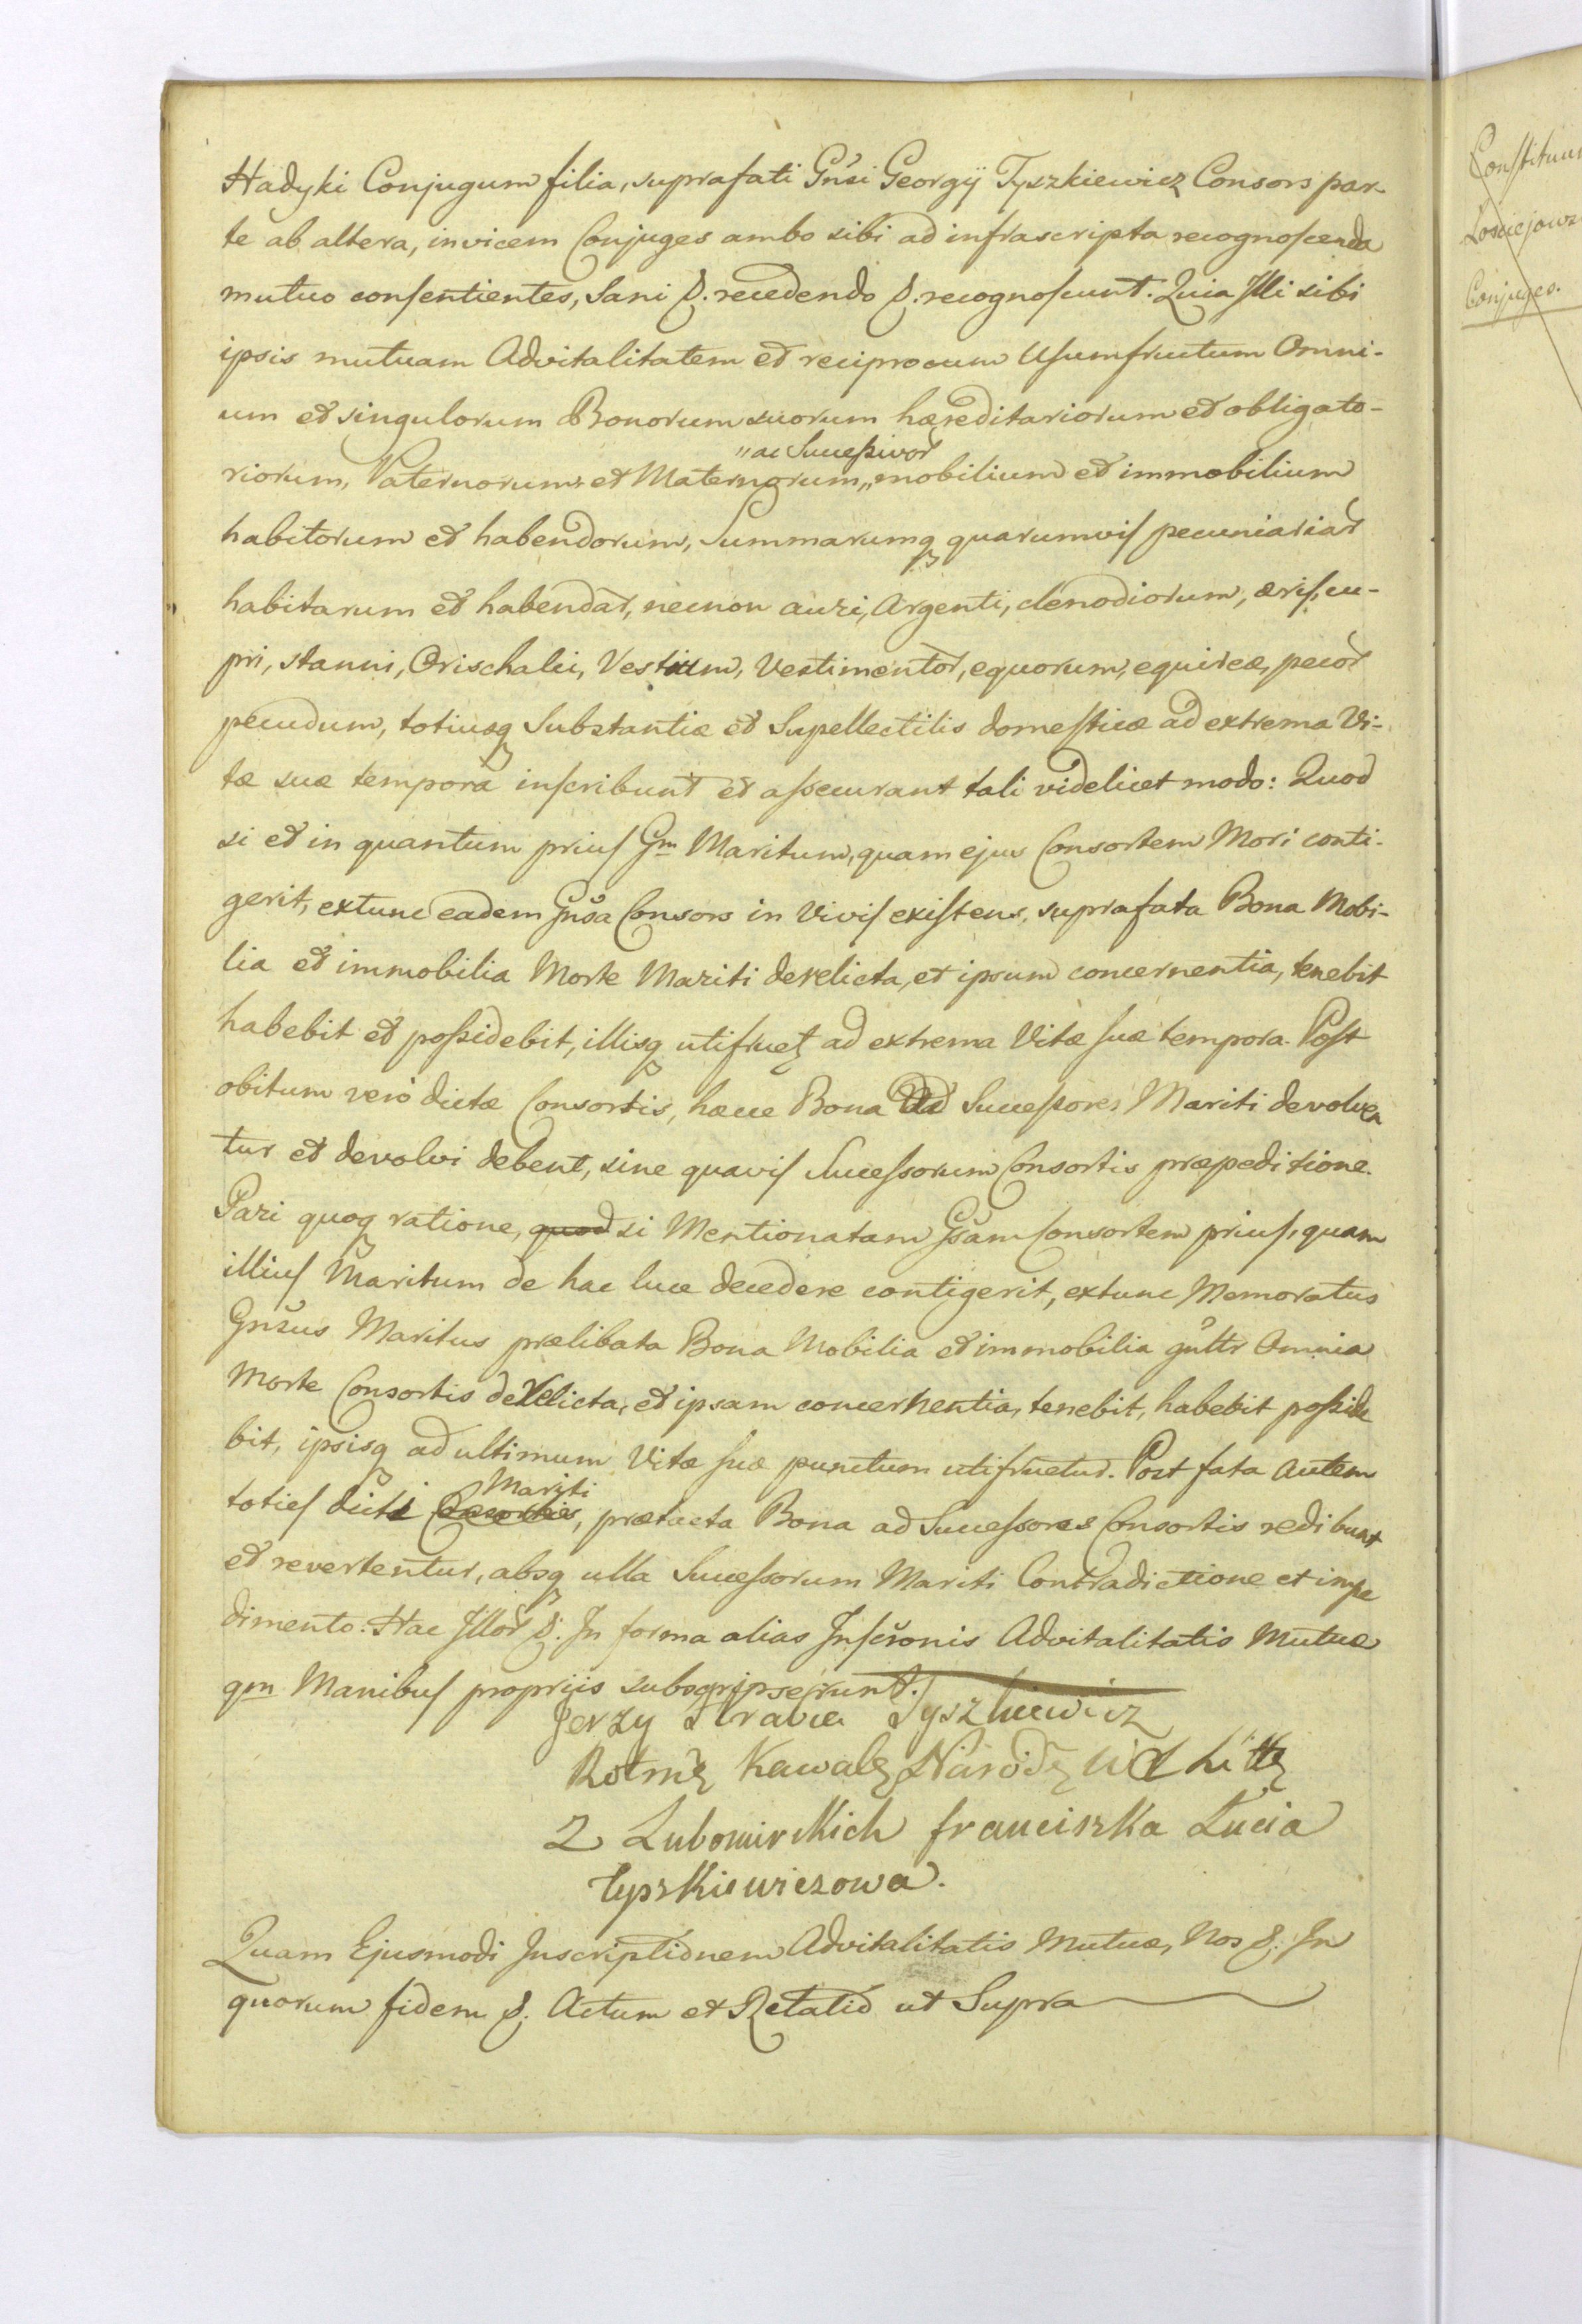 Hadyki Conjugum filia, suprafati Gnsi Georgij Tyszkiewicz Consors par-
te ab altera, invicem Conjuges ambo sibi ad infrascripta recognoscenda
mutuo consentientes, Sani &. recedendo &. recognoscunt. Quia Illi sibi
ipsis mutuam Advitalitatem et reciprocum Usumfructum Omni-
um et singulorum Bonorum suorum hæreditariorum et obligato-
„ac Successivor
riorum, Paternorum et Maternorum„ mobilium et immobilium
habitorum et habendorum, Summarumq quarumvis pecuniariar
habitarum et habendar, necnon auri, Argenti, clenodiorum, æris, cu-
pri, stanni, Orischalci, Vestium, Vestimentor, equorum, equireæ, pecor
pecudum, totiusq Substantiæ et Supellectilis domesticæ ad extrema Vi-
tæ suæ tempora inscribunt et assecurant tali videlicet modo: Quod
si et in quantum prius Gm Maritum, quam ejus Consortem Mori conti-
gerit, extunc eadem Gnsa Consors in Vivis existens, suprafata Bona Mobi-
lia et immobilia Morte Mariti derelicta, et ipsum concernentia, tenebit
habebit et possidebit, illisq utifruet ad extrema Vitæ suæ tempora. Post
obitum vero dictæ Consortis, hæcce Bona Ad Successores Mariti devolven
tur et devolvi debent, sine quavis Successorum Consortis præpeditione.
Pari quoq ratione, quod si Mentionatam Gsam Consortem prius, quam
illius Maritum de hac luce decedere contigerit, extunc Memoratus
Gnsus Maritus prælibata Bona Mobilia et immobilia gnltr Omnia
Morte Consortis derelicta, et ipsam concernentia, tenebit, habebit posside
bit, ipsisq ad ultimum Vitæ suæ punctum utifruetur. Post fata Autem
Mariti
toties dicti Consortis, prætacta Bona ad Successores Consortis redibunt
et revertentur, absq ulla Successorum Mariti Contradictione et impe
dimento. Hac Illor &. In forma alias Inscronis Advitalitatis Mutuæ
qm Manibus propriis subscripserunt.
Jerzy Hrabia Tyszkiewicz
Rotmz Kawalz Narodz W X Littz
Z Lubomirskich franciszka Łucia
Tyszkiewiczowa.
Quam Ejusmodi Inscriptionem Advitalitatis Mutuæ, Nos &. In
quorum fidem &. Actum et Datum ut Supra
Constituun
Conjuges.